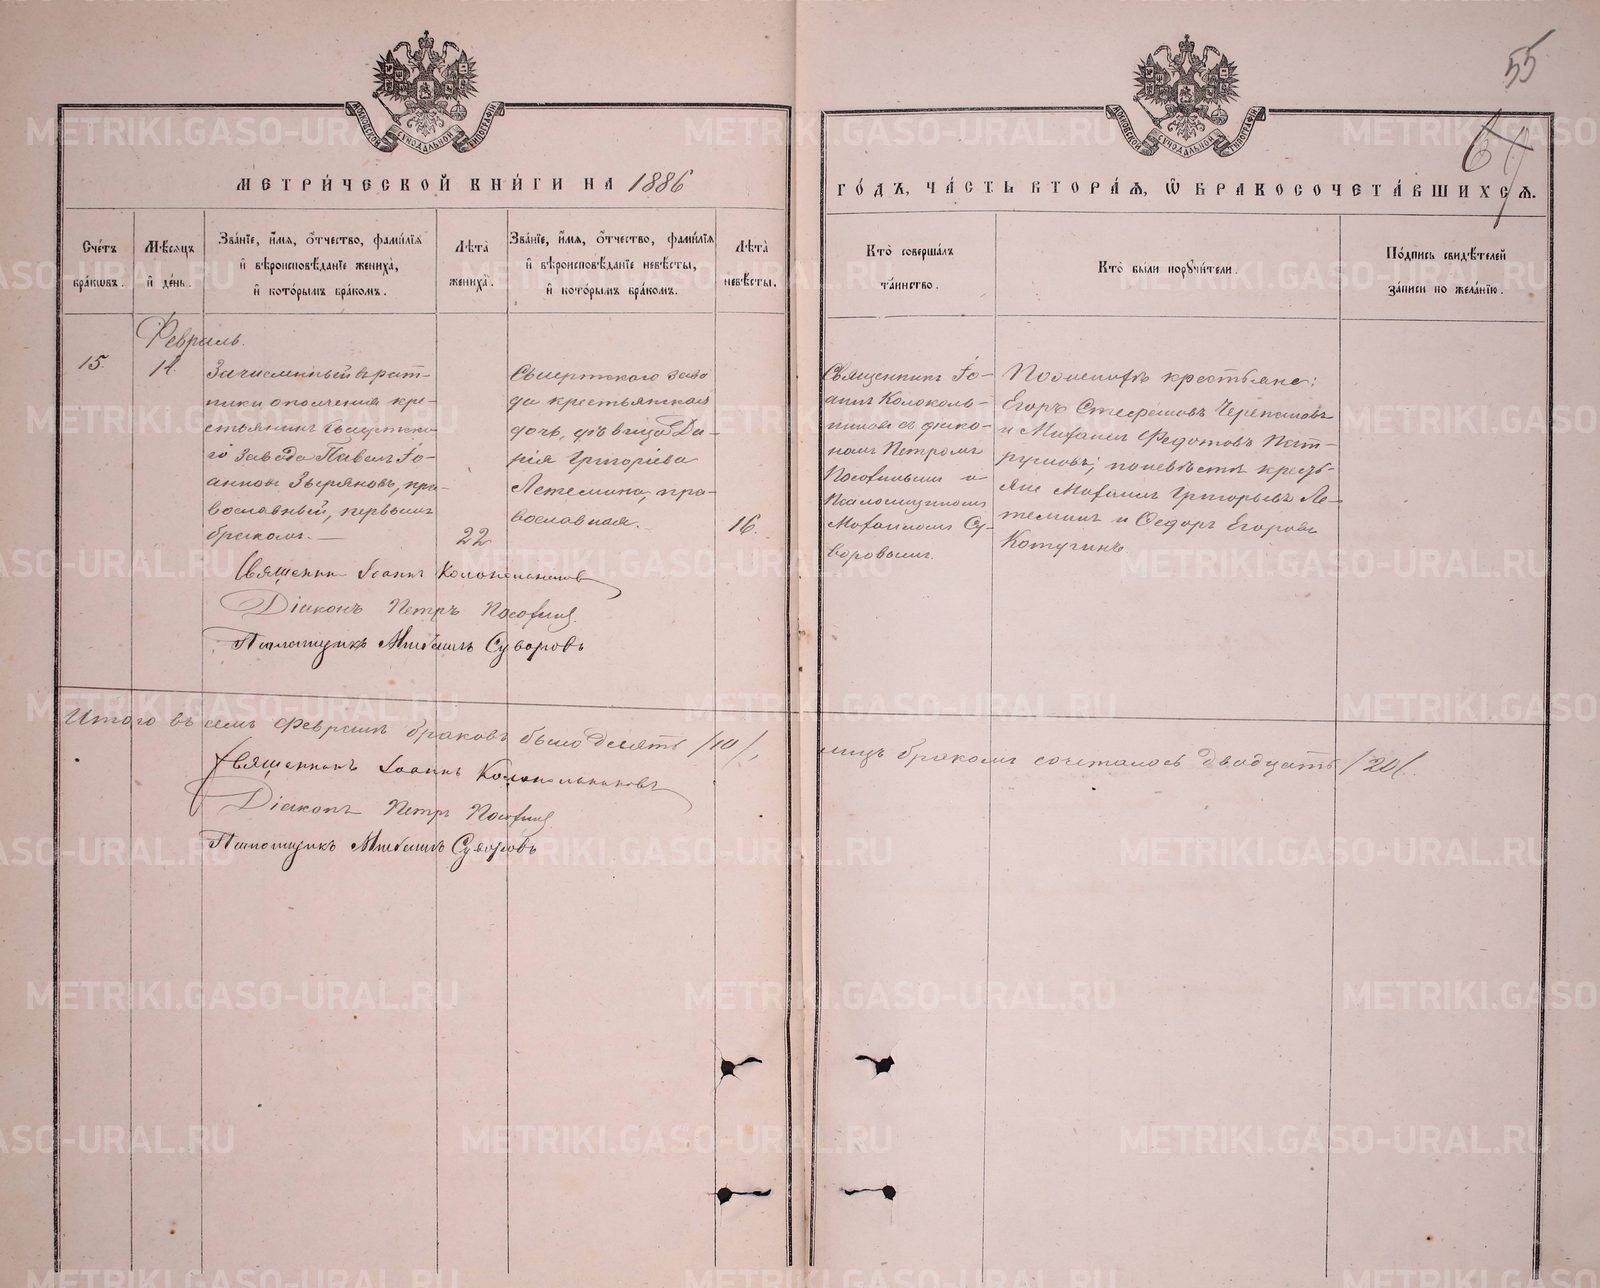 55
67
МОСКОВСКОЙ СѴНОДАЛЬНОЙ ТИПОГРАФІИ
МОСКОВСКОЙ СѴНОДАЛЬНОЙ ТИПОГРАФІИ
МЕТРИ́ЧЕСКОЙ КНИ́ГИ НА 1886
ГО́ДЪ, ЧА́СТЬ ВТОРА́Ѧ, Ѽ БРАКОСОЧЕТА́ВШИХСѦ.
Сче́тъ бра́кѡвъ.
Мѣ́сѧцъ и҆ де́нь.
Зва́нїе, и҆́мѧ, ѻ҆́тчество, фами́лїѧ и҆ вѣроисповѣ́данїе жениха̀, и҆ кото́рымъ бра́комъ.
Лѣ́та жениха̀.
Зва́нїе, и҆́мѧ, ѻ҆́тчество, фами́лїѧ и҆ вѣроисповѣ́данїе невѣ́сты, и҆ кото́рымъ бра́комъ.
Лѣ́та невѣ́сты.
Кто̀ соверша́лъ та́инство.
Кто̀ бы́ли порꙋчи́тели.
По́дпись свидѣ́телей за́писи по жела́нїю.
Февраль.
15.
14.
Зачисленный въ рат-
ники ополченія кре-
стьянинъ Сысертска-
го завода Павелъ Іо-
анновъ Зыряновъ, пра-
вославный, первымъ
бракомъ.
22
Сысертскаго заво
да крестьянская
дочь, дѣвица Да-
рія Григоріева
Летемина, пра-
вославная.
16.
Священникъ Іо-
аннъ Колоколь-
никовъ съ діако-
номъ Петромъ
Посохинымъ и
Псаломщикомъ
Михаиломъ Су-
воровымъ.
По женихѣ крестьяне:
Егоръ Стефановъ Черепановъ
и Михаилъ Федотовъ Пат-
рушовъ; по невѣстѣ кресть-
яне Михаилъ Григорьевъ Ле-
теминъ и Ѳедоръ Егоровъ
Котугинъ.
Священникъ Іоаннъ Колокольниковъ
Діаконъ Петръ Посохинъ
Псаломщикъ Михаилъ Суворовъ
Итого въ семъ Февралѣ браковъ было десять /10/,
лицъ бракомъ сочеталось двадцать /20/.
Священникъ Іоаннъ Колокольниковъ
Діаконъ Петръ Посохинъ
Псаломщикъ Михаилъ Суворовъ
METRIKI.GASO-URAL.RU